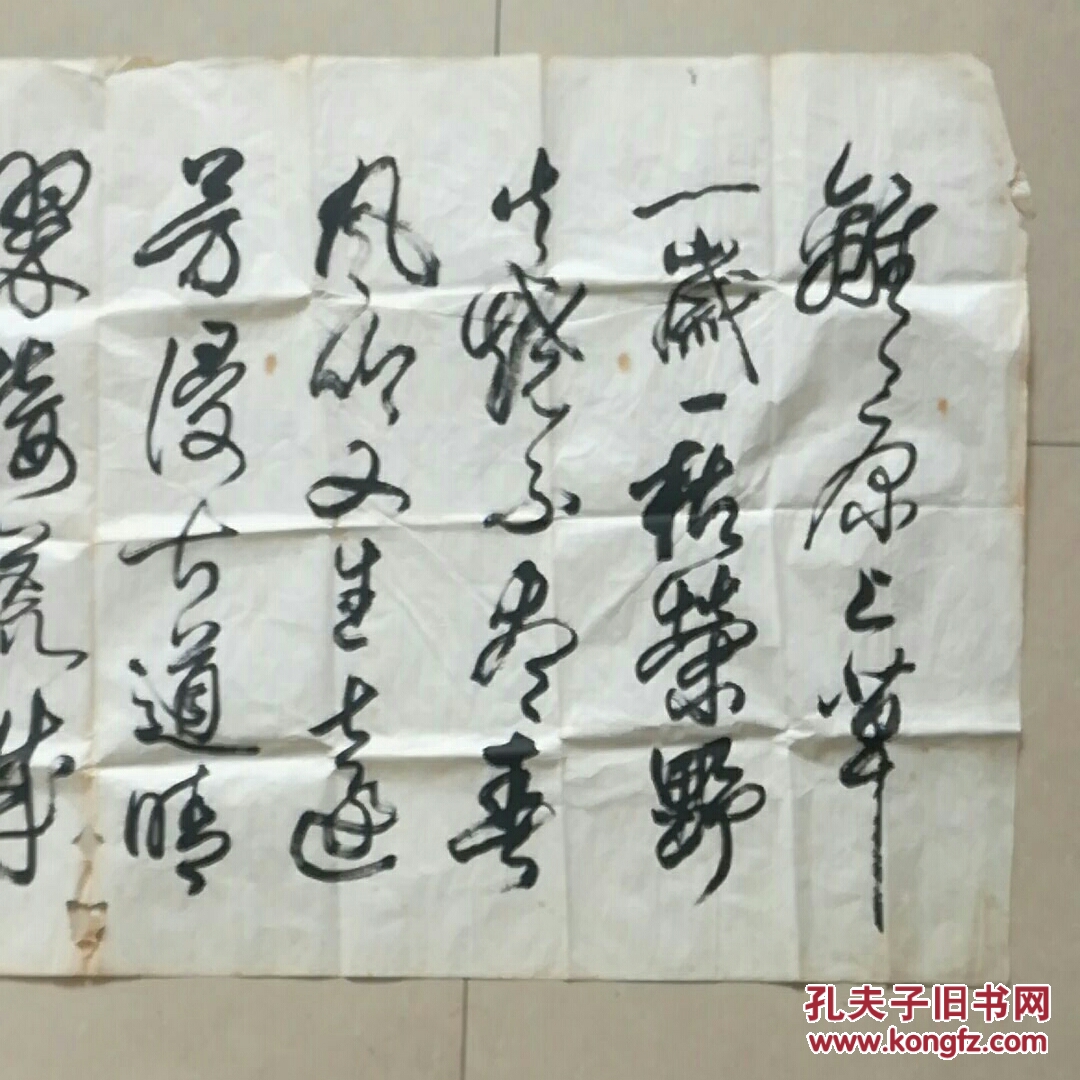 離々原上草
一歲一枯榮野
火燒不盡春
风吹又生遠
芳侵古道晴
翠接荒城
孔夫子旧书网
www.kongfz.com